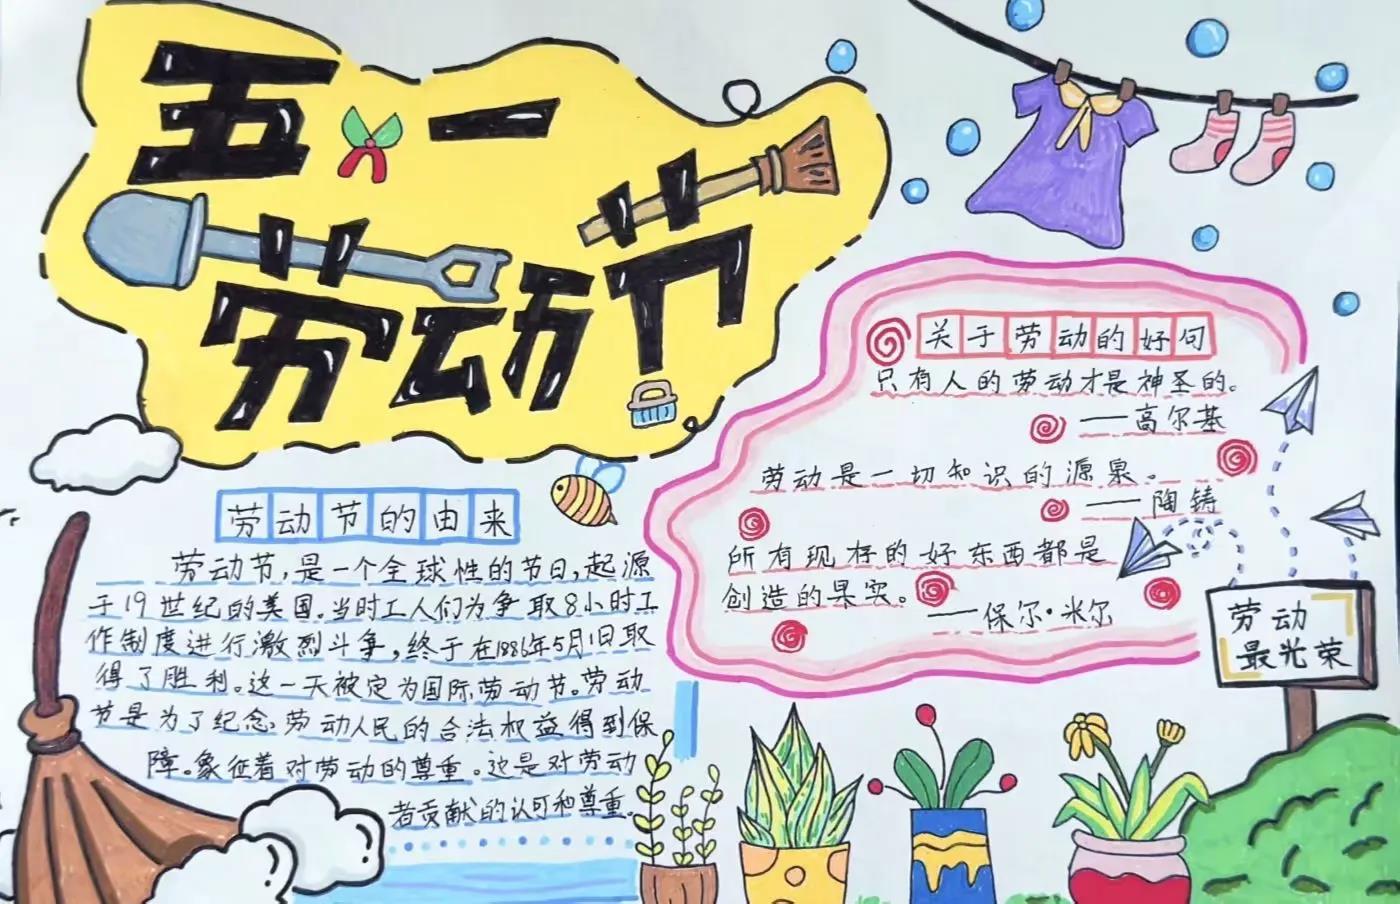 五一
劳动节
劳动节的由来
劳动节，是一个全球性的节日，起源
于19世纪的美国。当时工人们为争取8小时工
作制度进行激烈斗争，终于在1886年5月1日取
得了胜利。这一天被定为国际劳动节。劳动
节是为了纪念：劳动人民的合法权益得到保
障。象征着对劳动的尊重。这是对劳动
者贡献的认可和尊重。
关于劳动的好句
只有人的劳动才是神圣的。
——高尔基
劳动是一切知识的源泉。
——陶铸
所有现存的好东西都是
创造的果实。
——保尔·米尔
劳动
最光荣